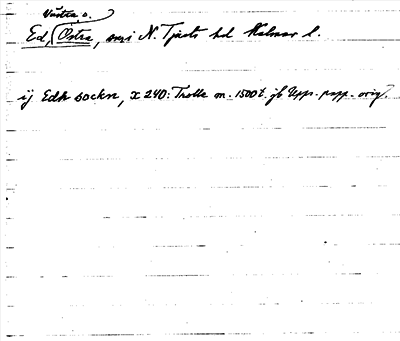 Västra o.
Ed, Östra, sn i N. Tjusts hd Kalmar l.
ij Edh sockn, x 240: Trolle m. 1500 t. jb Upps. papp. orig.